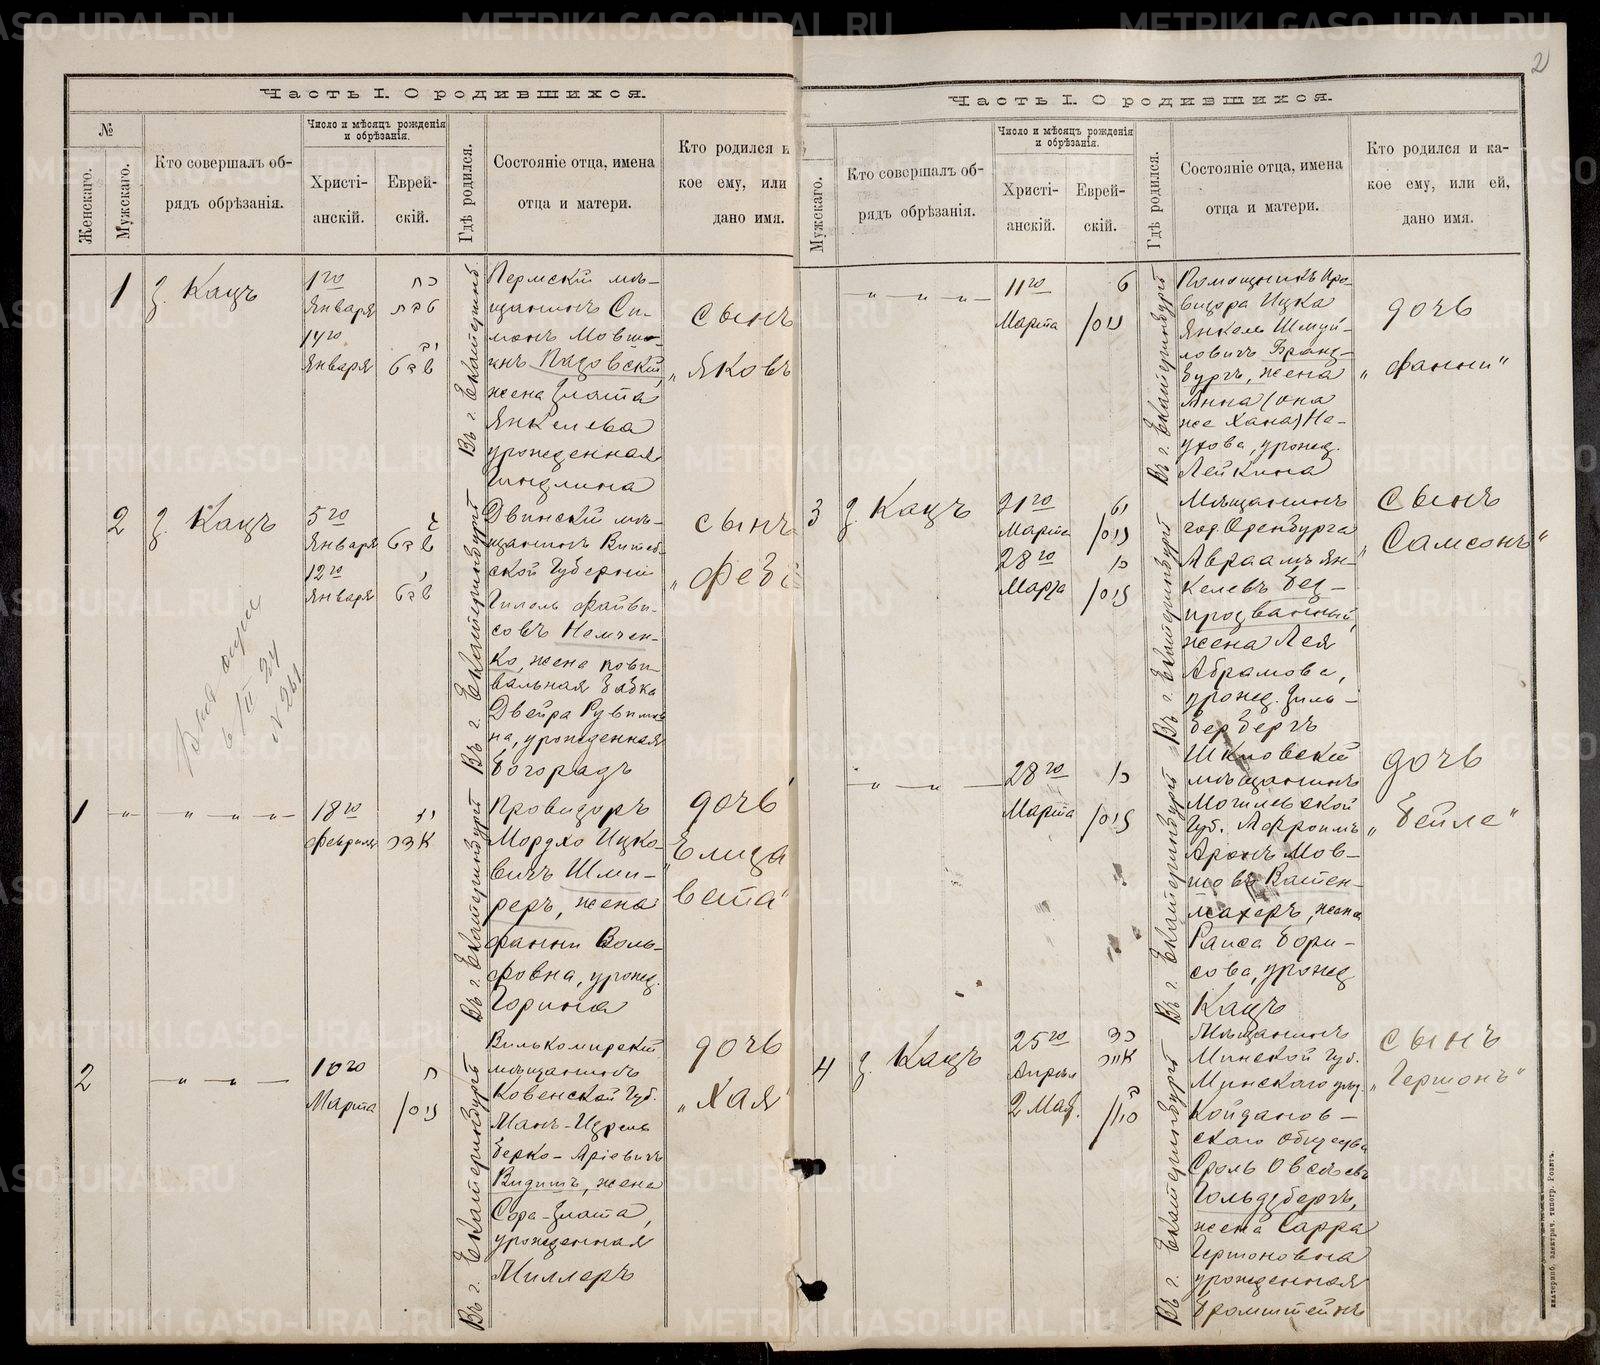 METRIKI.GASO-URAL.RU
2
Часть I. О родившихся.
№
Женскаго.
Мужскаго.
Кто совершалъ об-
рядъ обрѣзанія.
Число и мѣсяцъ рожденія
и обрѣзанія.
Христі-
анскій.
Еврей-
скій.
Гдѣ родился.
Состояніе отца, имена
отца и матери.
Кто родился и
кое ему, или
дано имя.
1
З. Кацъ
1го
Января
14го
Января
כח
טבת
Въ г. Екатеринб.
Пермскій мѣ-
щанинъ Си-
монъ Мовшо-
инъ Падовскій,
жена Злата
Янкелева
урожденная
Индлина
сынъ
„Яковъ
2
З. Кацъ
5го
Января
12го
Января
Въ г. Екатеринбургѣ
Двинскій мѣ-
щанинъ Витеб-
ской Губерніи
Гилель Файви-
совъ Немчен-
ко, жена пови-
вальная бабка
Двейра Рувимов-
на, урожденная
Богорадъ
сынъ
№ 261
1
„ „ „ „
18го
Февраля
Въ г. Екатеринбургѣ
Провизоръ
Мордхо Ицко-
вичъ Шми-
реръ, жена
Фанни Воль-
фовна, урожд.
Горина
дочь
„Елиза
вета“
2
„ „ „
10го
Марта
ח
ניסן
Въ г. Екатеринбургѣ
Вилькомирскій
мѣщанинъ
Ковенской Губ.
Манъ-Израиль
Берко-Аріевичъ
Видишъ, жена
Сора-Злата,
урожденная
Миллеръ
дочь
„Хая“
Часть I. О родившихся.
Мужскаго.
Кто совершалъ об-
рядъ обрѣзанія.
Число и мѣсяцъ рожденія
и обрѣзанія.
Христі-
анскій.
Еврей-
скій.
Гдѣ родился.
Состояніе отца, имена
отца и матери.
Кто родился и ка-
кое ему, или ей,
дано имя.
„ „ „ „
11го
Марта
ט
ניסן
Въ г. Екатеринбургѣ
Помощникъ Про-
визора Ицка
Янкель Шмуй-
ловичъ Бранд-
бургъ, жена
Анна (она
же Хана) Не-
ухова, урожд.
Лейкина
дочь
„Фанни“
3
З. Кацъ
21го
Марта
28го
Марта
ניסן
ניסן
Въ г. Екатеринбургѣ
Мѣщанинъ
гор. Оренбурга
Авраамъ Ян-
келевъ Без-
прозванный,
жена Лея
Абрамова,
урожд. Зиль-
бербергъ
сынъ
„Самсонъ“
„ „ „
28го
Марта
ניסן
Въ г. Екатеринбургѣ
Шкловскій
мѣщанинъ
Могилевской
Губ. Мовшовъ Ватен-
махеръ, жена
Раиса Бори-
сова, урожд.
Кацъ
дочь
„Бейле“
4
З. Кацъ
25го
Апрѣля
2 Мая.
Въ г. Екатеринбургѣ
Мѣщанинъ
Минской Губ.
Минскаго уѣзд.
Койданов-
скаго общества
Сроль Овсѣевъ
Гольдбергъ,
жена Сарра
Гершоновна
урожденная
Бромштейнъ
сынъ
„Гершонъ“
Екатеринб. электрич. типогр.